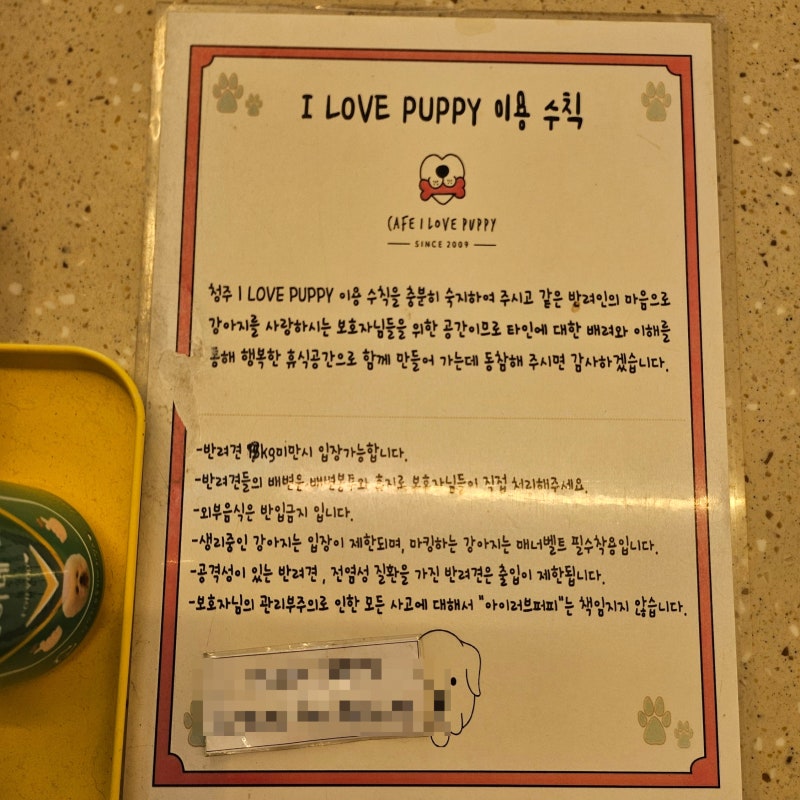 I LOVE PUPPY 이용 수칙
CAFE I LOVE PUPPY
SINCE 2009
청주 I LOVE PUPPY 이용 수칙을 충분히 숙지하여 주시고 같은 반려인의 마음으로
강아지를 사랑하시는 보호자님들을 위한 공간이므로 타인에 대한 배려와 이해를
통해 행복한 휴식공간으로 함께 만들어 가는데 동참해 주시면 감사하겠습니다.
-반려견 kg미만시 입장가능합니다.
-반려견들의 배변은 배변봉투와 휴지로 보호자님들이 직접 처리해주세요.
-외부음식은 반입금지 입니다.
-생리중인 강아지는 입장이 제한되며, 마킹하는 강아지는 매너벨트 필수착용입니다.
-공격성이 있는 반려견, 전염성 질환을 가진 반려견은 출입이 제한됩니다.
-보호자님의 관리부주의로 인한 모든 사고에 대해서 "아이러브퍼피"는 책임지지 않습니다.